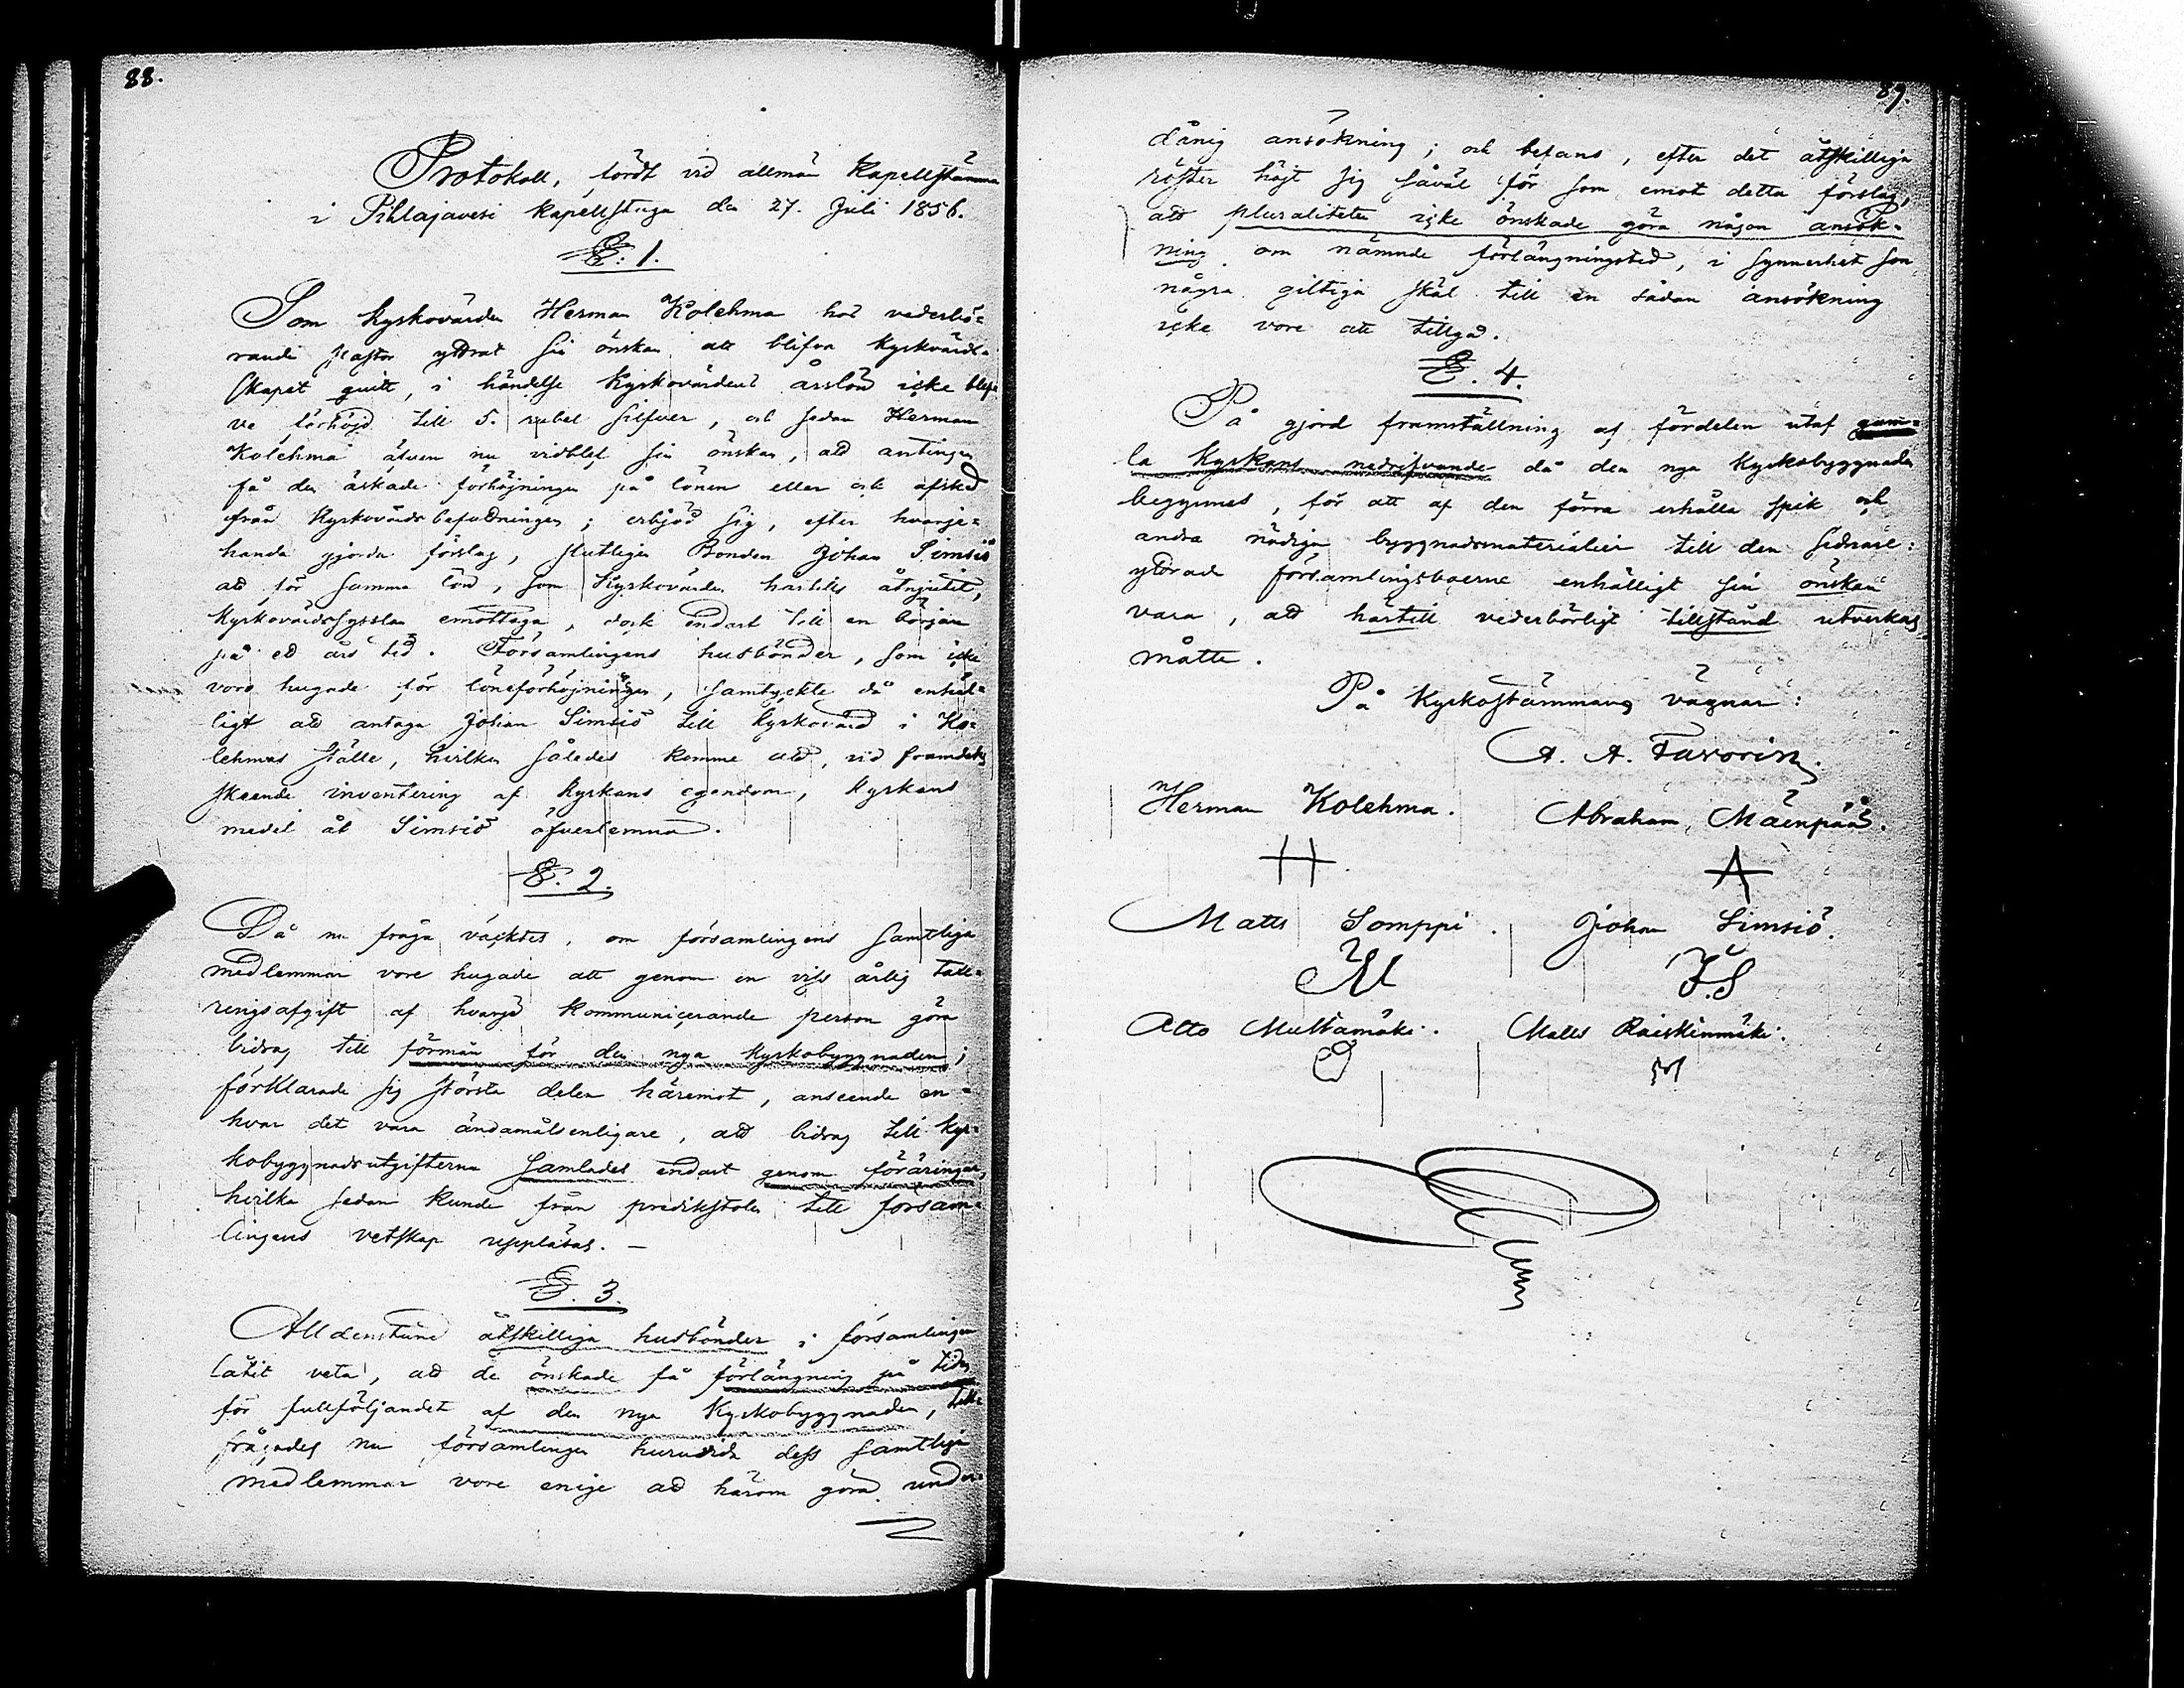 88.
Protokoll, fördt vid allmän Kapellstämma
i Pihlajavesi Kapellstuga den 27. Juli 1856.
§: 1.
Som Kyrkovärden Herman Kolehma hos vederbö=
rande pastor yttrat sin önskan att blifva Kyrkvärd=
skapet quitt, i händelse Kyrkovärdens årslön icke blef=
ve förhöjd till 5. rubel silfver, och sedan Herman
Kolehma äfven nu vidblef sin önskan, att antingen
få den äskade förhöjningen på lönen eller och afsked
från Kyrkovärdsbefattningen; erbjöd sig, efter hvarje=
handa gjorda förslag, slutligen Bonden Johan Simsiö
att för samma lön, som Kyrkovärden hartills åtnjutit,
Kyrkovärdssysslan emottaga, dock endast till en början
på ett års tid. Församlingens husbönder, som icke
voro hugade för löneförhöjningen, samtyckte då enhäl=
ligt att antaga Johan Simsiö till Kyrkovärd i Ko=
lehmas ställe, hvilken således komme att, vid framdeles
skeende inventering af Kyrkans egendom, Kyrkans
medel åt Simsiö öfverlemna.
§. 2.
Då nu fråga väcktes, om församlingens samtliga
medlemmar vore hugade att genom en viss årlig
af hvarje Kommunicerande person göra
bidrag till förmån för den nya Kyrkobyggnaden;
förklarade sig största delen häremot, anseende en=
hvar det vara ändamålsenligare, att bidrag till Kyr=
kobyggnadsutgifterna samlades endast genom föräringar,
hvilka sedan kunde från predikstolen till försam=
lingens vetskap uppläsas. —
§. 3.
Alldenstund åtskilliga husbönder i församlingen
låtit veta, att de önskade få förlängning på tiden
för fullföljandet af den nya Kyrkobyggnaden, till=
frågades nu församlingen huruvida dess samtliga
medlemmar vore enige att härom göra under=
89.
dånig ansökning; och befans, efter det åtskilliga
röster höjt sig såväl för som emot detta förslag,
att pluraliteten icke önskade göra någon ansök=
ning om nämnde förlängningstid, i synnerhet som
några giltiga skäl till en sådan ansökning
icke vore att tillgå.
§. 4.
På gjord framställning af fördelen utaf gam=
la Kyrkans nedrifvande då den nya Kyrkobyggnaden
begynnes, för att af den förra erhålla spik och
andra nödiga byggnadsmaterialier till den sednare:
yttrade församlingsboerne enhälligt sin önskan
vara, att härtill vederbörligt tillstånd utverkas
måtte.
På Kyrkostämmans vägnar:
A. A. Favorin.
Herman Kolehma. Abraham Mäenpää.
H A
Matts Somppi. Johan Simsiö.
M J.S
Otto Multamäki. Matts Raiskinmäki.
O M